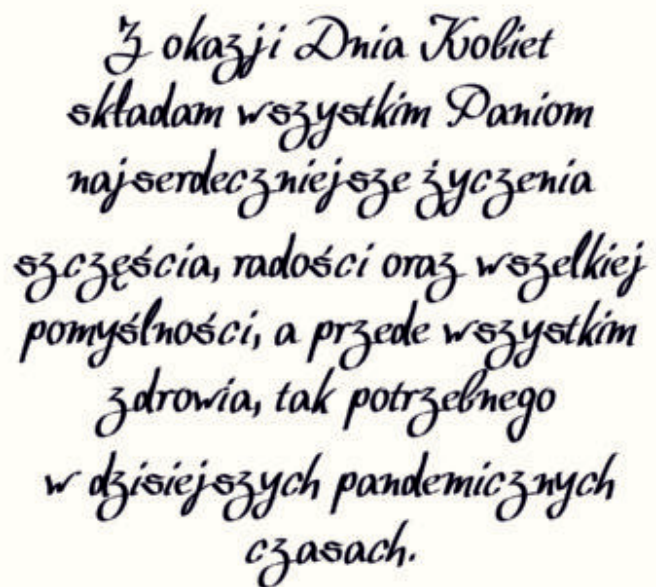 Z okazji Dnia Kobiet
składam wszystkim Paniom
najserdeczniejsze życzenia
szczęścia, radości oraz wszelkiej
pomyślności, a przede wszystkim
zdrowia, tak potrzebnego
w dzisiejszych pandemicznych
czasach.